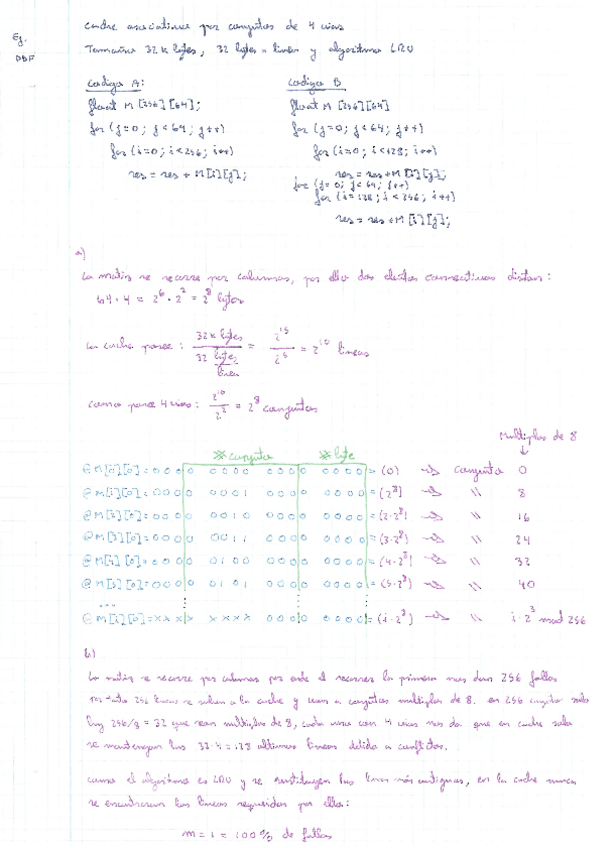 Ej.
DBF
cache asociativa por conjuntos de 4 vias
Tamaño 32 k bytes, 32 bytes x linea y algoritmo LRU
codigo A:
float M [256][64];
for (j=0; j<64; j++)
for (i=0; i<256; i++)
res = res + M[i][j];
codigo B
float M [256][64]
for (j=0; j<64; j++)
for (i=0; i<128; i++)
res = res + M[i][j];
for (j=0; j<64; j++)
for (i=128; i<256; i++)
res = res + M[i][j];
a)
La matriz se recorre por columnas, por ello dos elentos consecutivos distan:
64 · 4 = 2^6 · 2^2 = 2^8 bytes
La cache posee: 32k bytes / 32 bytes/linea = 2^15 / 2^5 = 2^10 lineas
como posee 4 vias: 2^10 / 2^2 = 2^8 conjuntos
Multiplos de 8
↓
# conjunto # byte
@M[0][0]=0000 0000 0000 0000 = (0) → conjunto 0
@M[1][0]=0000 0001 0000 0000 = (2^8) → " 8
@M[2][0]=0000 0010 0000 0000 = (2·2^8) → " 16
@M[3][0]=0000 0011 0000 0000 = (3·2^8) → " 24
@M[4][0]=0000 0100 0000 0000 = (4·2^8) → " 32
@M[5][0]=0000 0101 0000 0000 = (5·2^8) → " 40
...
@M[i][0]=xxxx xxxx 0000 0000 = (i·2^8) → " i·2^3 mod 256
b)
La matriz se recorre por columnas por ende al recorrer la primera nos dara 256 fallos
256 lineas se suben a la cache y van a conjuntos multiplos de 8. en 256 conjuntos solo
hay 256/8 = 32 que sean multiplos de 8, cada uno con 4 vias nos da que en cache solo
se mantengan las 32·4 = 128 ultimas lineas debido a conflictos.
como el algoritmo es LRU y se sustituyen las lineas más antiguas, en la cache nunca
se encontraran las lineas requeridas por ello:
m = 1 = 100% de fallos